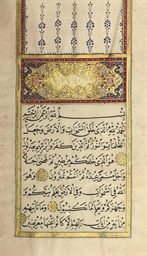 بسم الله الرحمن الرحيم
الحمد لله الذي خلق السموات والارض وجعل
الظلمات والنور ثم الذين كفروا بربهم يعدلون
هو الذي خلقكم من طين ثم قضى اجلا
واجل مسمى عنده ثم انتم تمترون وهو
الله في السموات وفي الارض يعلم سركم و
جهركم ويعلم ما تكسبون وما تاتيهم
من اية من ايات ربهم الا كانوا عنها معرضين